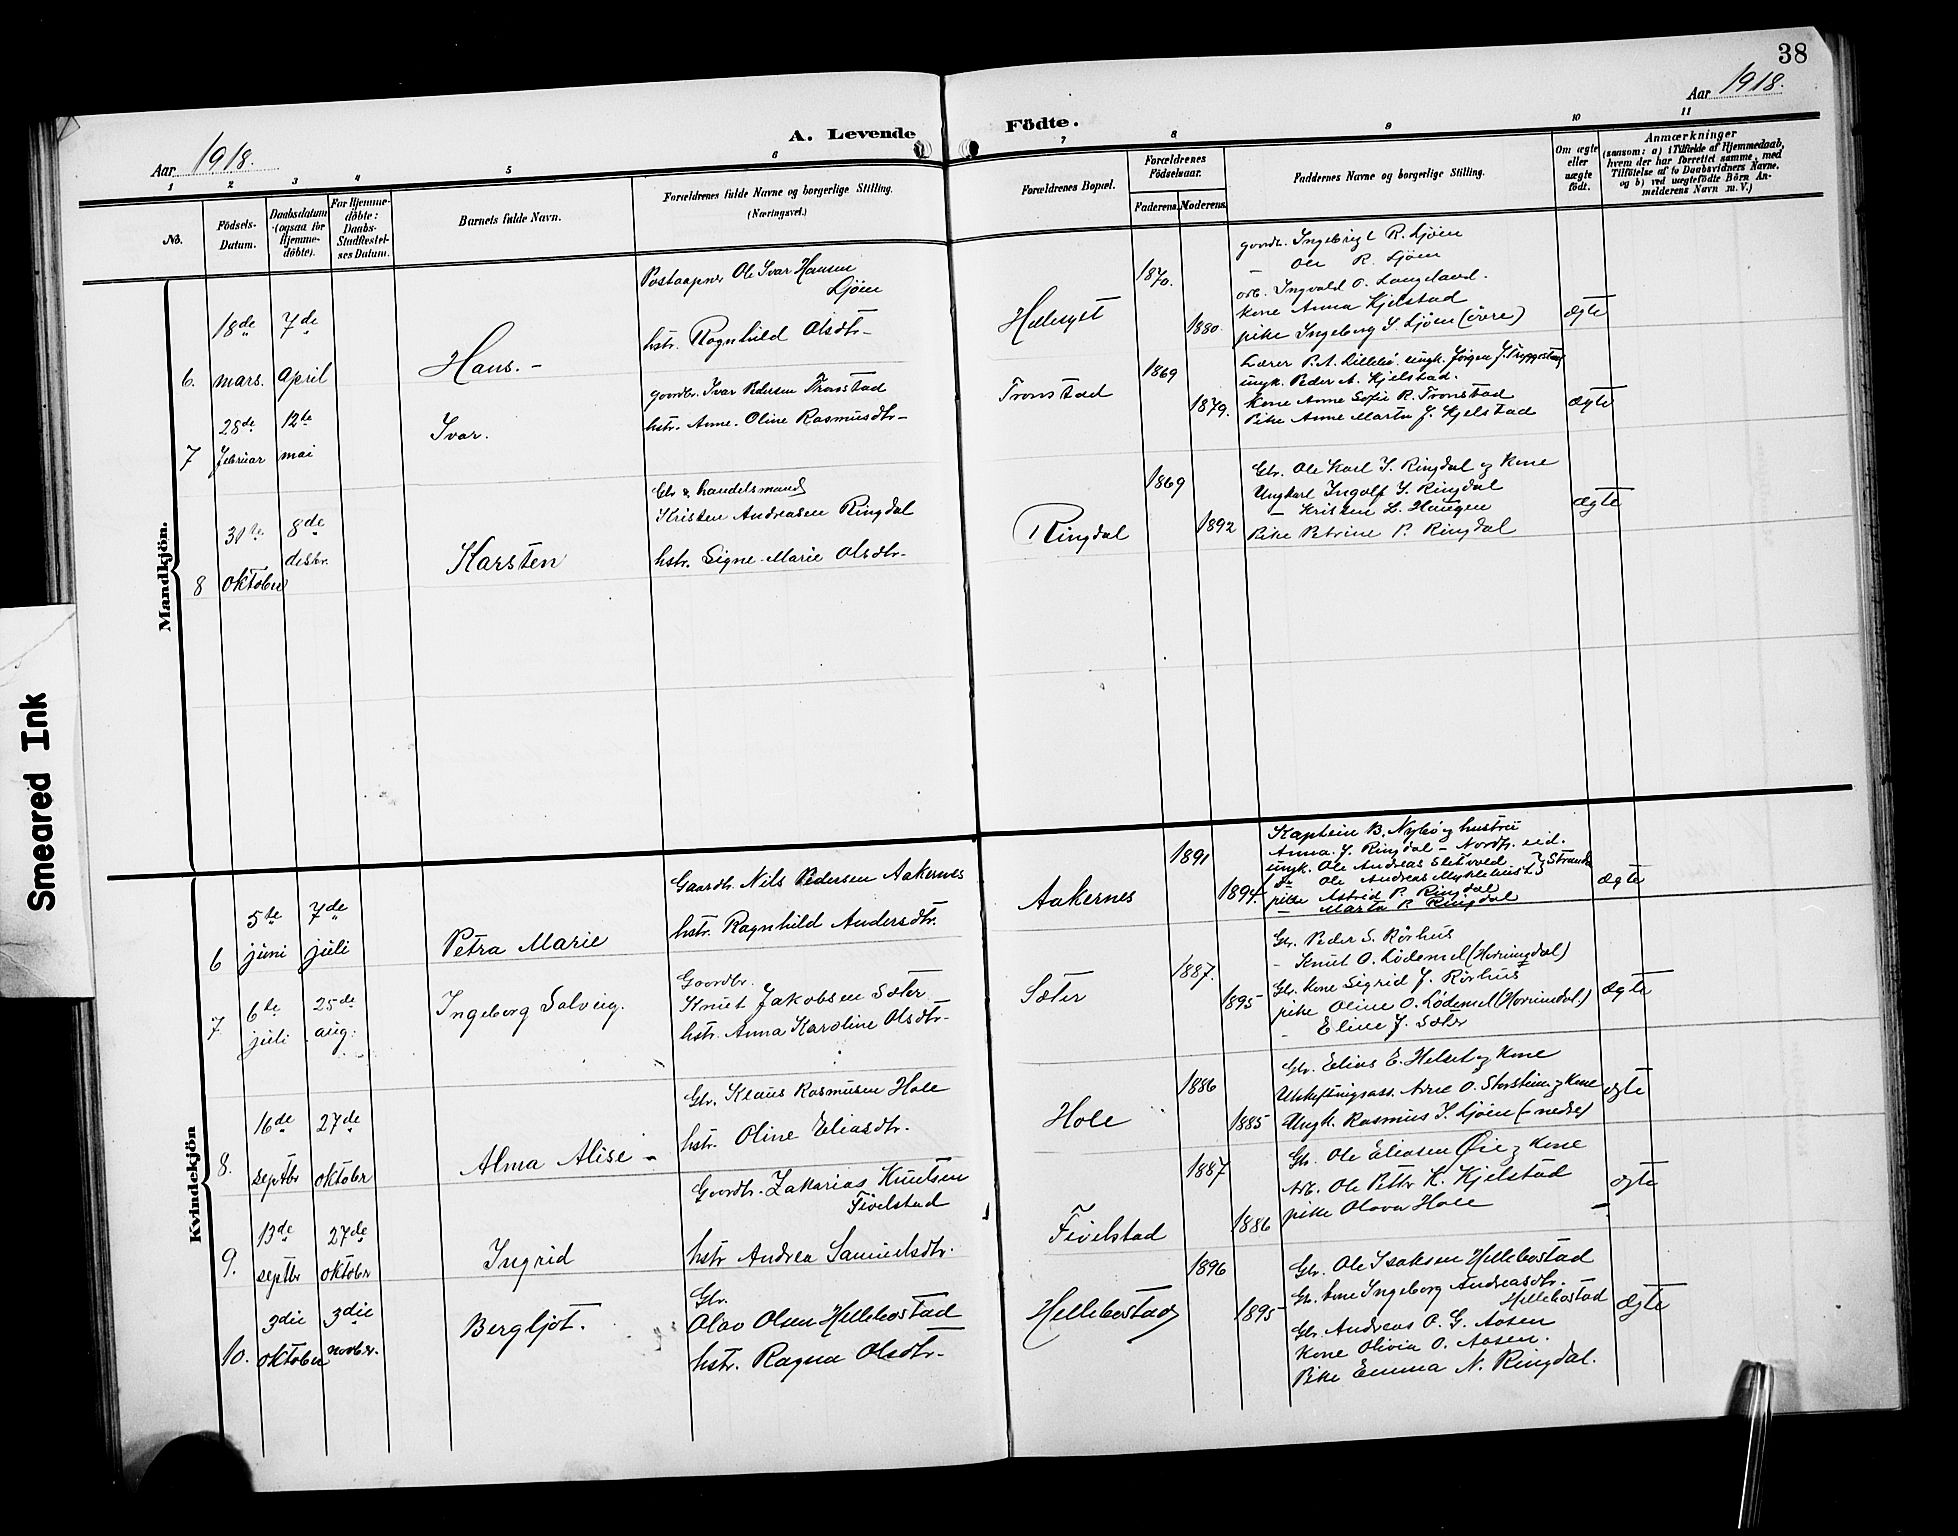 38
Aar 1918.
A. Levende Födte.
Aar 1918.
1 2 3 4 5 6 7 8 9 10 11
No.
Födsels-Datum.
Daabsdatum (ogsaa for Hjemme-döbte).
For Hjemme-döbte: Daabs-Stadfestel-ses Datum.
Barnets fulde Navn.
Forældrenes fulde Navne og borgerlige Stilling.
(Næringsvei.)
Forældrenes Bopæl.
Forældrenes Födselsaar.
Faderens. Moderens.
Faddernes Navne og borgerlige Stilling.
Om ægte eller uægte födt.
Anmærkninger
(saasom: a) i Tilfælde af Hjemmedaab,
hvem der har forrettet samme, med
Tilföielse af to Daabsvidners Navne.
og b) ved uægtefödte Börn An-
melderens Navn m. V.)
Mandkjön.
6.
18de mars.
7de April
Hans. -
Postaapner Ole Ivar Hansen
Ljöen
hstr. Ragnhild Olsdtr-
Hellesylt
1870.
1880.
gaardbr. Ingebrigt R. Ljöen
— Ole R. Ljöen
arb. Ingvald O. Langeland.
Kone Anna Kjelstad
pike Ingeborg I. Ljöen (övre)
Ægte
7
28de Februar
12te mai
Ivar.
gaardbr. Ivar Pedersen Tronstad
hstr. Anne. Oline Rasmusdtr-
Tronstad
1869
1879.
Lærer P. A. Lillebö. ungk. Jörgen J. Tryggestad
ungk. Peder A. Kjelstad.
Kone Anne Sofie R. Tronstad
Pike Anne Marta J. Kjelstad
Ægte
8
31te Oktober
8de desbr.
Karsten
Gbr & handelsmand
Kristen Andreasen Ringdal
hstr. Signe Marie Olsdtr-
Ringdal
1869
1892
Gbr. Ole Karl I. Ringdal og Kone
Ungkarl Ingolf I. Ringdal
— Kristen L. Haugen
Pike Petrine P. Ringdal
Ægte
Kvindekjön
6
5te juni
7de juli
Petra Marie
Gaardbr. Nils Pedersen Aakernes
hstr. Ragnhild Andersdtr.
Aakernes
1891
1894.
Kaptein B. Nybö og hustru
Anna J. Ringdal - Nordfj. eid.
ungk. Ole Andreas Slitvold } Stranda
do Ole Andreas Myklebust }
pike Astrid P. Ringdal
— Marta P. Ringdal
Ægte
7
6te juli
25de aug.
Ingeborg Solveig.
Gaardbr.
Knut Jakobsen Sæter
hstr. Anna Karoline Olsdtr-
Sæter
1887.
1895
Gbr. Peder S. Rörhus
- Knut O. Lödemel (Horningdal)
Gbr. Kone Sigrid J. Rörhus
pike Oline O. Lödemel (Hornindal.)
- Eline J. Sæter
Ægte
8.
16de septbr
27de oktober
Alma Alise -
Gbr. Klaus Rasmusen Hole
hstr. Oline Eliasdtr.
Hole
1886
1885
Gbr. Elias E. Helset og Kone
Utskiftningsass. Arne O. Storsheim og Kone
Ungk. Rasmus I. Ljöen (- nedre)
ægte
9.
13de septbr
27de oktober
Ingrid
Gaardbr. Zakarias Knutsen
Fivelstad
hstr Andrea Samuelsdtr.
Fivelstad
1887
1886
Gbr. Ole Eliasen Øie og Kone
Arb. Ole Petter K. Kjelstad
pike Olava Hole -
ægte
10.
3die Oktober
3die novbr.
Bergljot.
Gbr.
Olav Olsen Hellebostad
hstr. Ragna Olsdtr-
Hellebostad
1896
1895
Gbr. Ole Isaksen Hellebostad
Gbr. Kone Ingeborg Andreasdtr.
Hellebostad
Gbr Andreas O. G. Aasen
Kone Olivia O. Aasen.
Pike Emma N. Ringdal.
Ægte
Smeared Ink